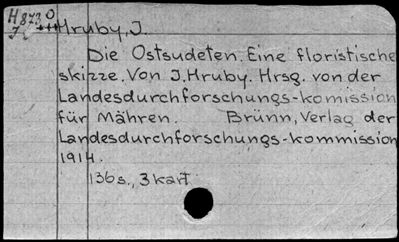 H 8730
Hruby, J.
Die Ostsudeten. Eine floristische
skizze. Von J. Hruby. Hrsg. von der
Landesdurchforschungs-komission
für Mähren. Brünn, Verlag der
Landesdurchforschungs-kommission
1914.
136s., 3 kart